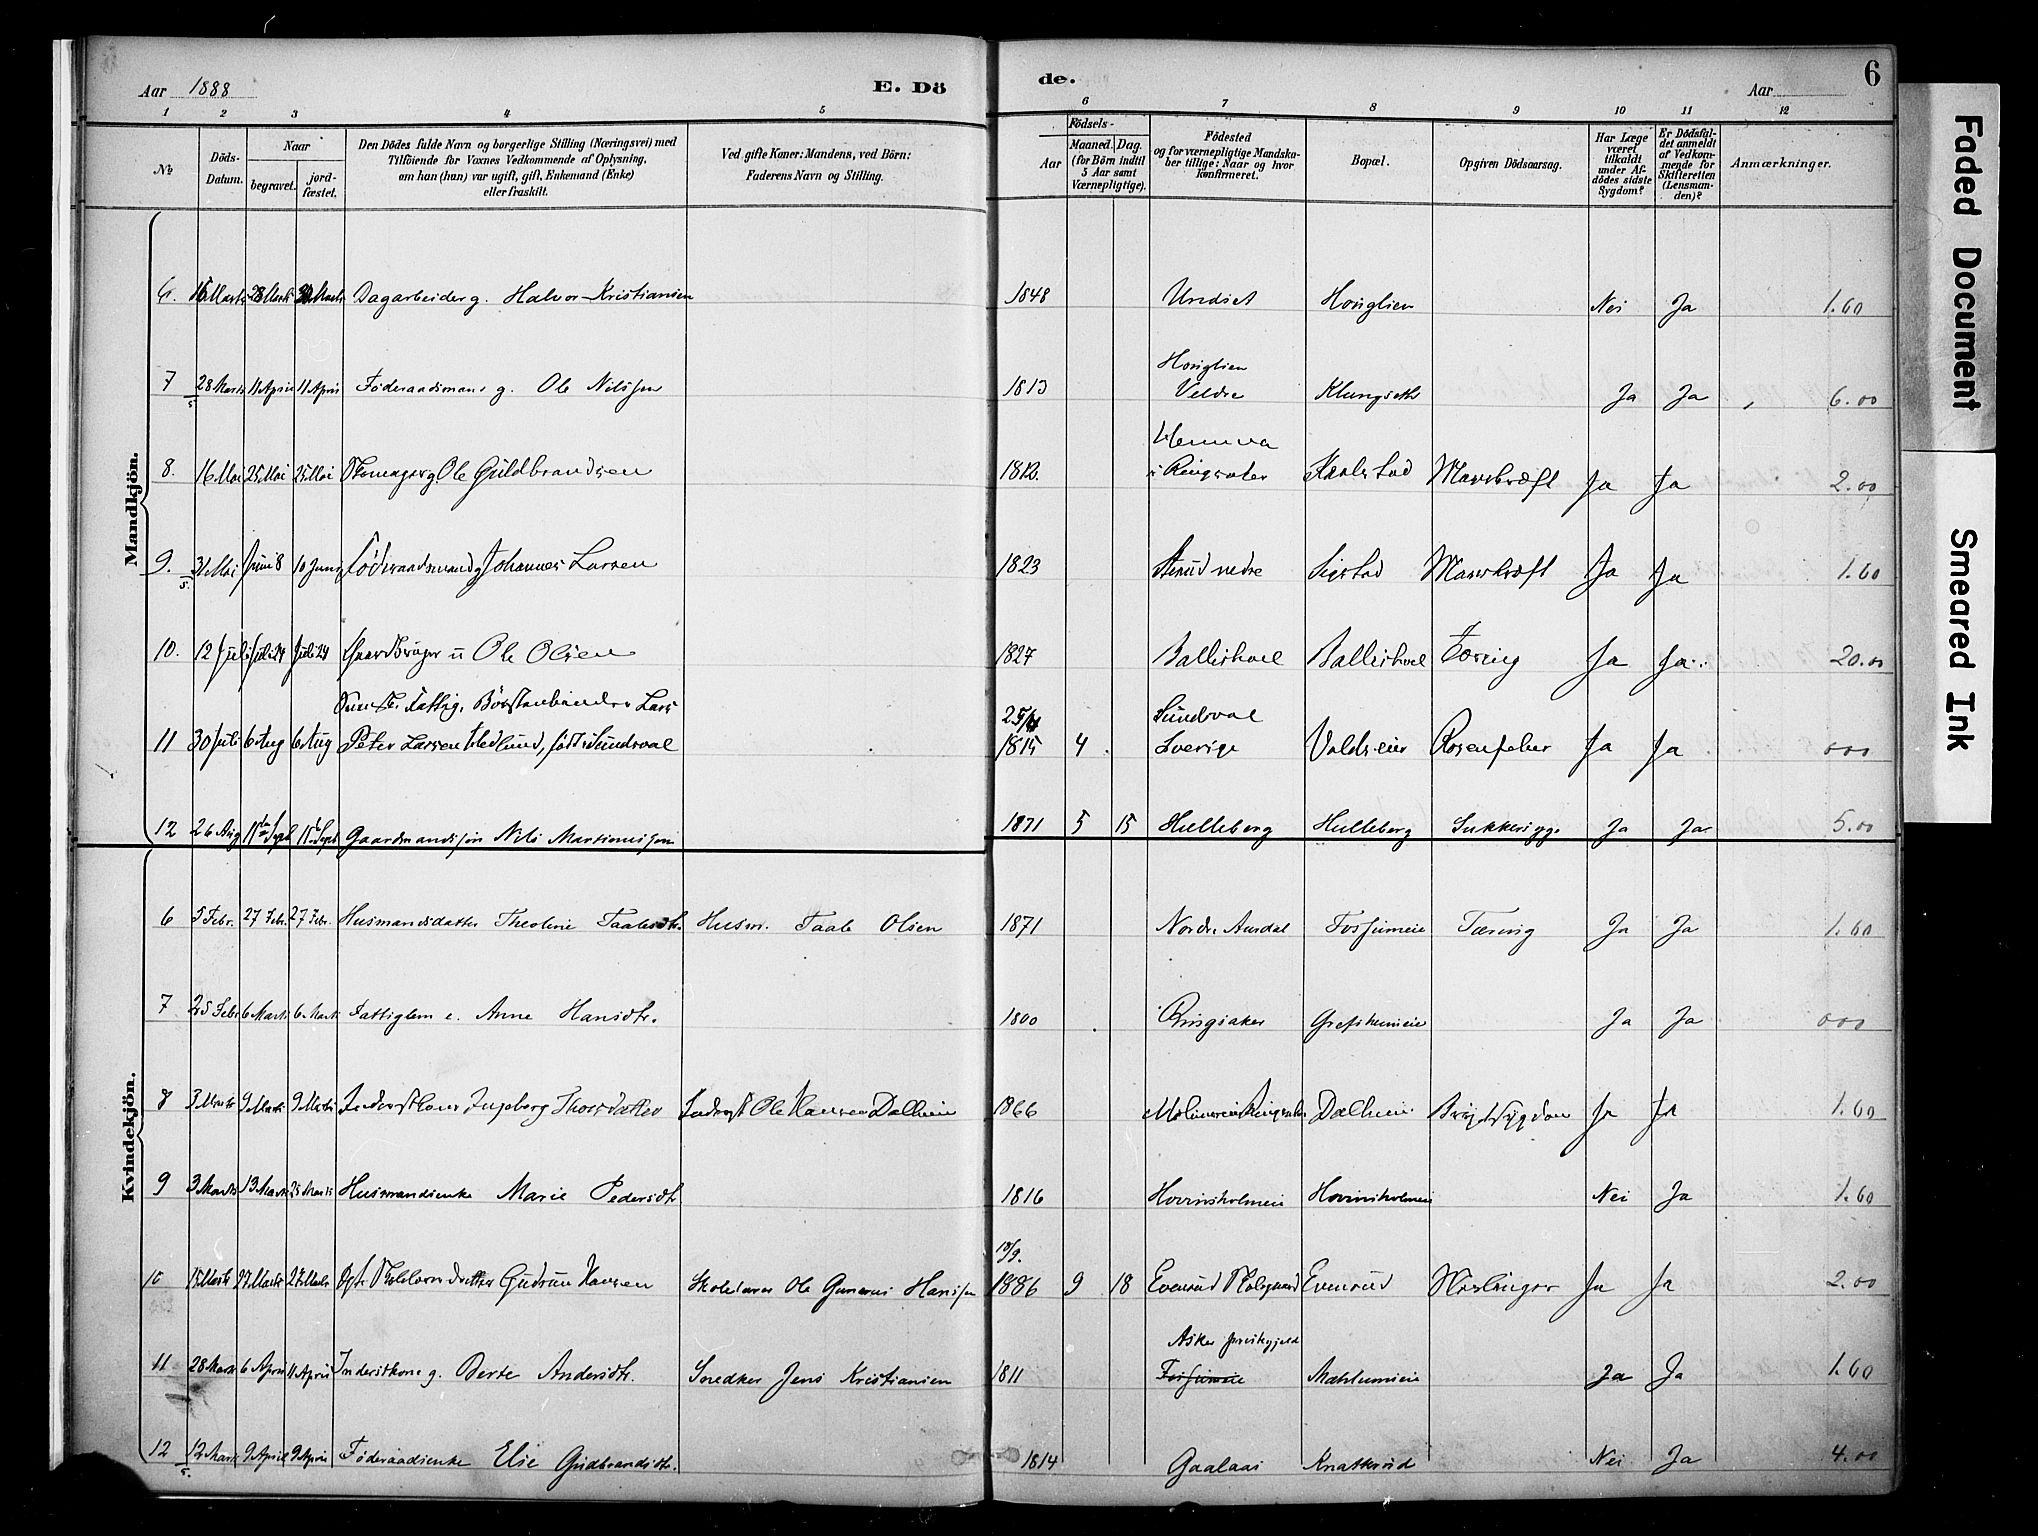 Aar 1888
E. Dö
de.
Aar
6
1 2 3 4 5 6 7 8 9 10 11 12
No
Döds-Datum.
Naar
begravet.
jord-fæstet.
Den Dödes fulde Navn og borgerlige Stilling (Næringsvei) med
Tilföiende for Voxnes Vedkommende af Oplysning,
om han (hun) var ugift, gift, Enkemand (Enke)
eller fraskilt.
Ved gifte Koner: Mandens, ved Börn:
Faderens Navn og Stilling.
Födsels-
Aar
Maaned. Dag.
(for Börn indtil
5 Aar samt
Værnepligtige).
Födested
og for værnepligtige Mandska-
ber tillige: Naar og hvor
konfirmeret.
Bopæl.
Opgiven Dödsaarsag.
Har Læge
været
tilkaldt
under Af-
dödes sidste
Sygdom?
Er Dödsfal-
det anmeldt
af Vedkom-
mende for
Skifteretten
(Lensman-
den)?
Anmærkninger.
Mandkjön.
6. 16 Marts 28 Marts Marts Dagarbeider g. Halvor Kristiansen 1848 Undset Honglien Nei Ja 1.60
Honglien
7 28 Marts 11 April 11 April Föderaadsmand g. Ole Nilssen 1813 Veldre Klungseth Ja Ja 6.00
8. 16 Mai 25 Mai 25 Mai Ole Guldbrandsen 1812. Ringsaker Kaalstad Mavekræft Ja Ja 2.00
9. 31 Mai Juni 8 10 Juni Föderaadsmand g Johannes Larsen 1823 Stenud nedre Sigstad Mavekræft Ja Ja 1.60
10. 12 Juli Juli 24 Juli 24 Gaardbruger u Ole Olsen 1827 Ballishoel Ballishoel Tæring Ja Ja 20.00
Fattig, Börstenbinder Lars 25/4 Sundsval
11 30 Juli 6 Aug 6 Aug Peter Larsen Hedlund, född i Sundsval 1815 4 Sverige Voldseie Rosenfeber Ja Ja 000
12 26 Aug 11te Sept 11te Sept Gaardmandssön Nils Martiniussen 1871 5 15 Hulleberg Hulleberg Sukkersyge Ja Ja 5.00
Kvindekjön.
6 5 Febr. 27 Febr. 27 Febr. Husmandsdatter Theoline Taalesdtr. Husm. Taale Olsen 1871 Nordre Aurdal Fossumeie Tæring Ja Ja 1.60
7 25 Febr 6 Marts 6 Marts Fattiglem e. Anne Hansdtr. 1800 Ringsaker Grefsheimeie Ja Ja 000
8 3 Marts 9 Marts 9 Marts Inderstkone Ingeborg Thorsdatter Inderst Ole Hansen Dælheim 1866 Dælheim Brystsygdom Ja Ja 1.60
9 3 Marts 13 Marts 25 Marts Husmandsenke Marie Pedersdtr. 1816 Hovinsholmeie Hovinsholmeie Nei Ja 1.60
10/9.
10 15 Marts 27 Marts 27 Marts Skolelærerdatter Gudrun Hansen Skolelærer Ole Gunerius Hanssen 1886 9 18 Evenrud Skolegaard Evenrud Mæslinger Ja Ja 2.00
Asker præstegjeld
11 28 Marts 6 April 11 April Inderstkone g. Berte Andersdtr. Snedker Jens Kristiansen 1811 Fossumeie Mæhlumeie Ja Ja 1.60
12 12 Marts 9 April 9 April Föderaadsenke Elie Gudbrandsdtr. 1814 Gaalaas Knatterud Nei Ja 4.00
Faded Document
Smeared Ink